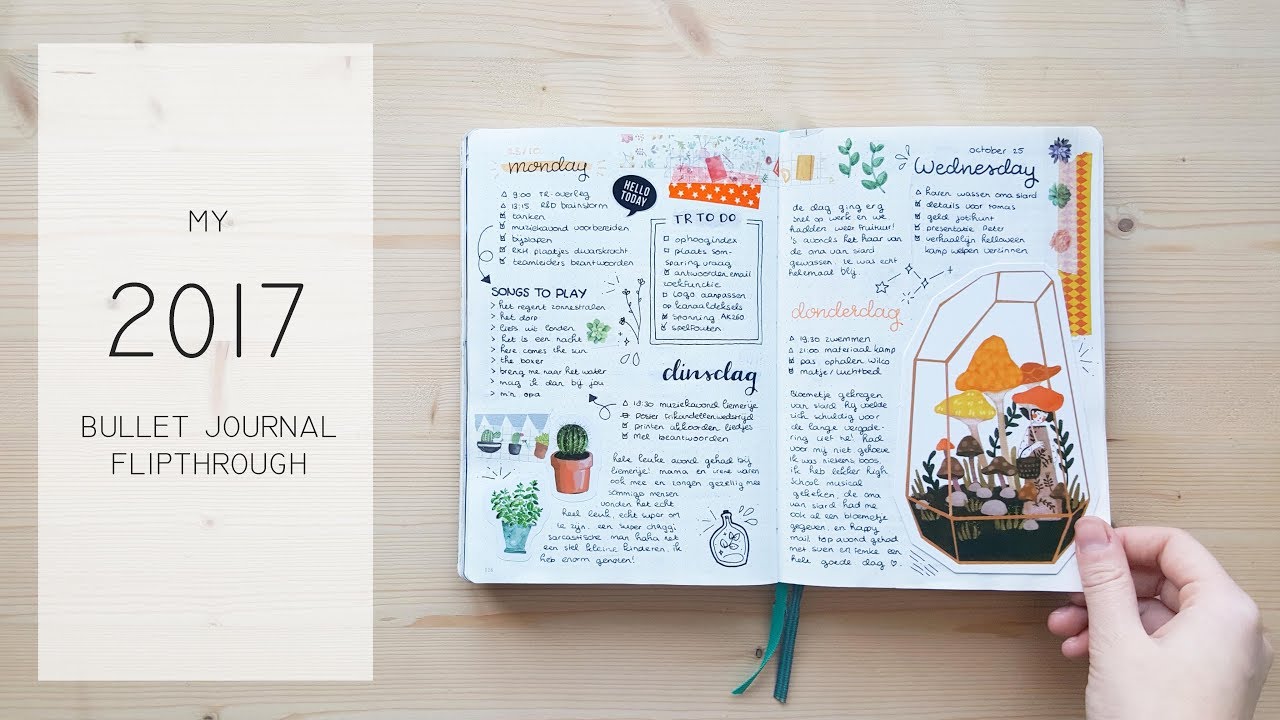 MY
2017
BULLET JOURNAL
FLIPTHROUGH
monday
9:00 TR overleg
13:15 R&D brainworm
tanken
muziekavond voorbereiden
bijslapen
echt plaatjes dwarskracht
teamleiders beantwoorden
HELLO
TODAY
TR TO DO
ophoogindex
plaats som
sparing vraag
antwoorden email
zoekfunctie
logo aanpassen
kanaaldeksels
sponning AK260
spelfouten
SONGS TO PLAY
> het regent zonnestralen
> het dorp
> liefs uit londen
> het is een nacht
> here comes the sun
> the boxer
> breng me naar het water
> mag ik dan bij jou
> mn opa
dinsdag
18:30 muziekavond liemerije
printen akkoorden liedjes
Mel beantwoorden
hele leuke avond gehad bij
liemerije. mama en irene waren
ook mee en zongen gezellig mee
sommige mensen
vonden het echt
heel leuk, echt super om
te zijn. een super chaggi
sarcastische man haha, zet
een stel kleine kinderen. ik
heb enorm genoten!
october 25
Wednesday
haren wassen oma siard
details voor tomas
geld jotihunt
presentatie Peter
verhaallijn helloween
kamp welpen verzinnen
de dag ging erg
snel op werk en we
hadden weer fruitkuur!
's avonds het haar van
de oma van siard
gewassen. ze was echt
helemaal blij.
donderdag
19:30 zwemmen
21:00 materiaal kamp
pas ophalen wilo
matje luchtbed
Bloemetje gekregen
van siard hij voelde
zich schuldig voor
de lange vergade-
ring uit het had
voor mij niet gehoeven
ik heb lekker high
school musical
gekeken. de oma
van siard had me
ook al een bloemetje
gegeven, en happy
mail. top avond gehad
met sven en lemke een
hele goede dag ♡.